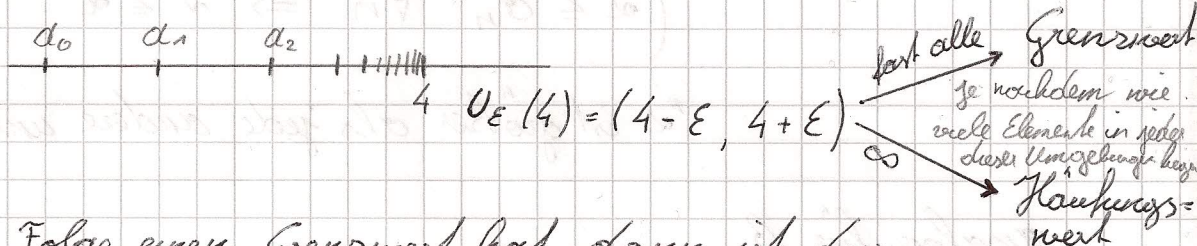 a₀ a₁ a₂
4
U_ε(4) = (4-ε, 4+ε)
fast alle Grenzwert
je nachdem wie
viele Elemente in jeder
dieser Umgebungen liegen
∞
Häufungs=
wert
Folge einen Grenzwert hat, dann ist